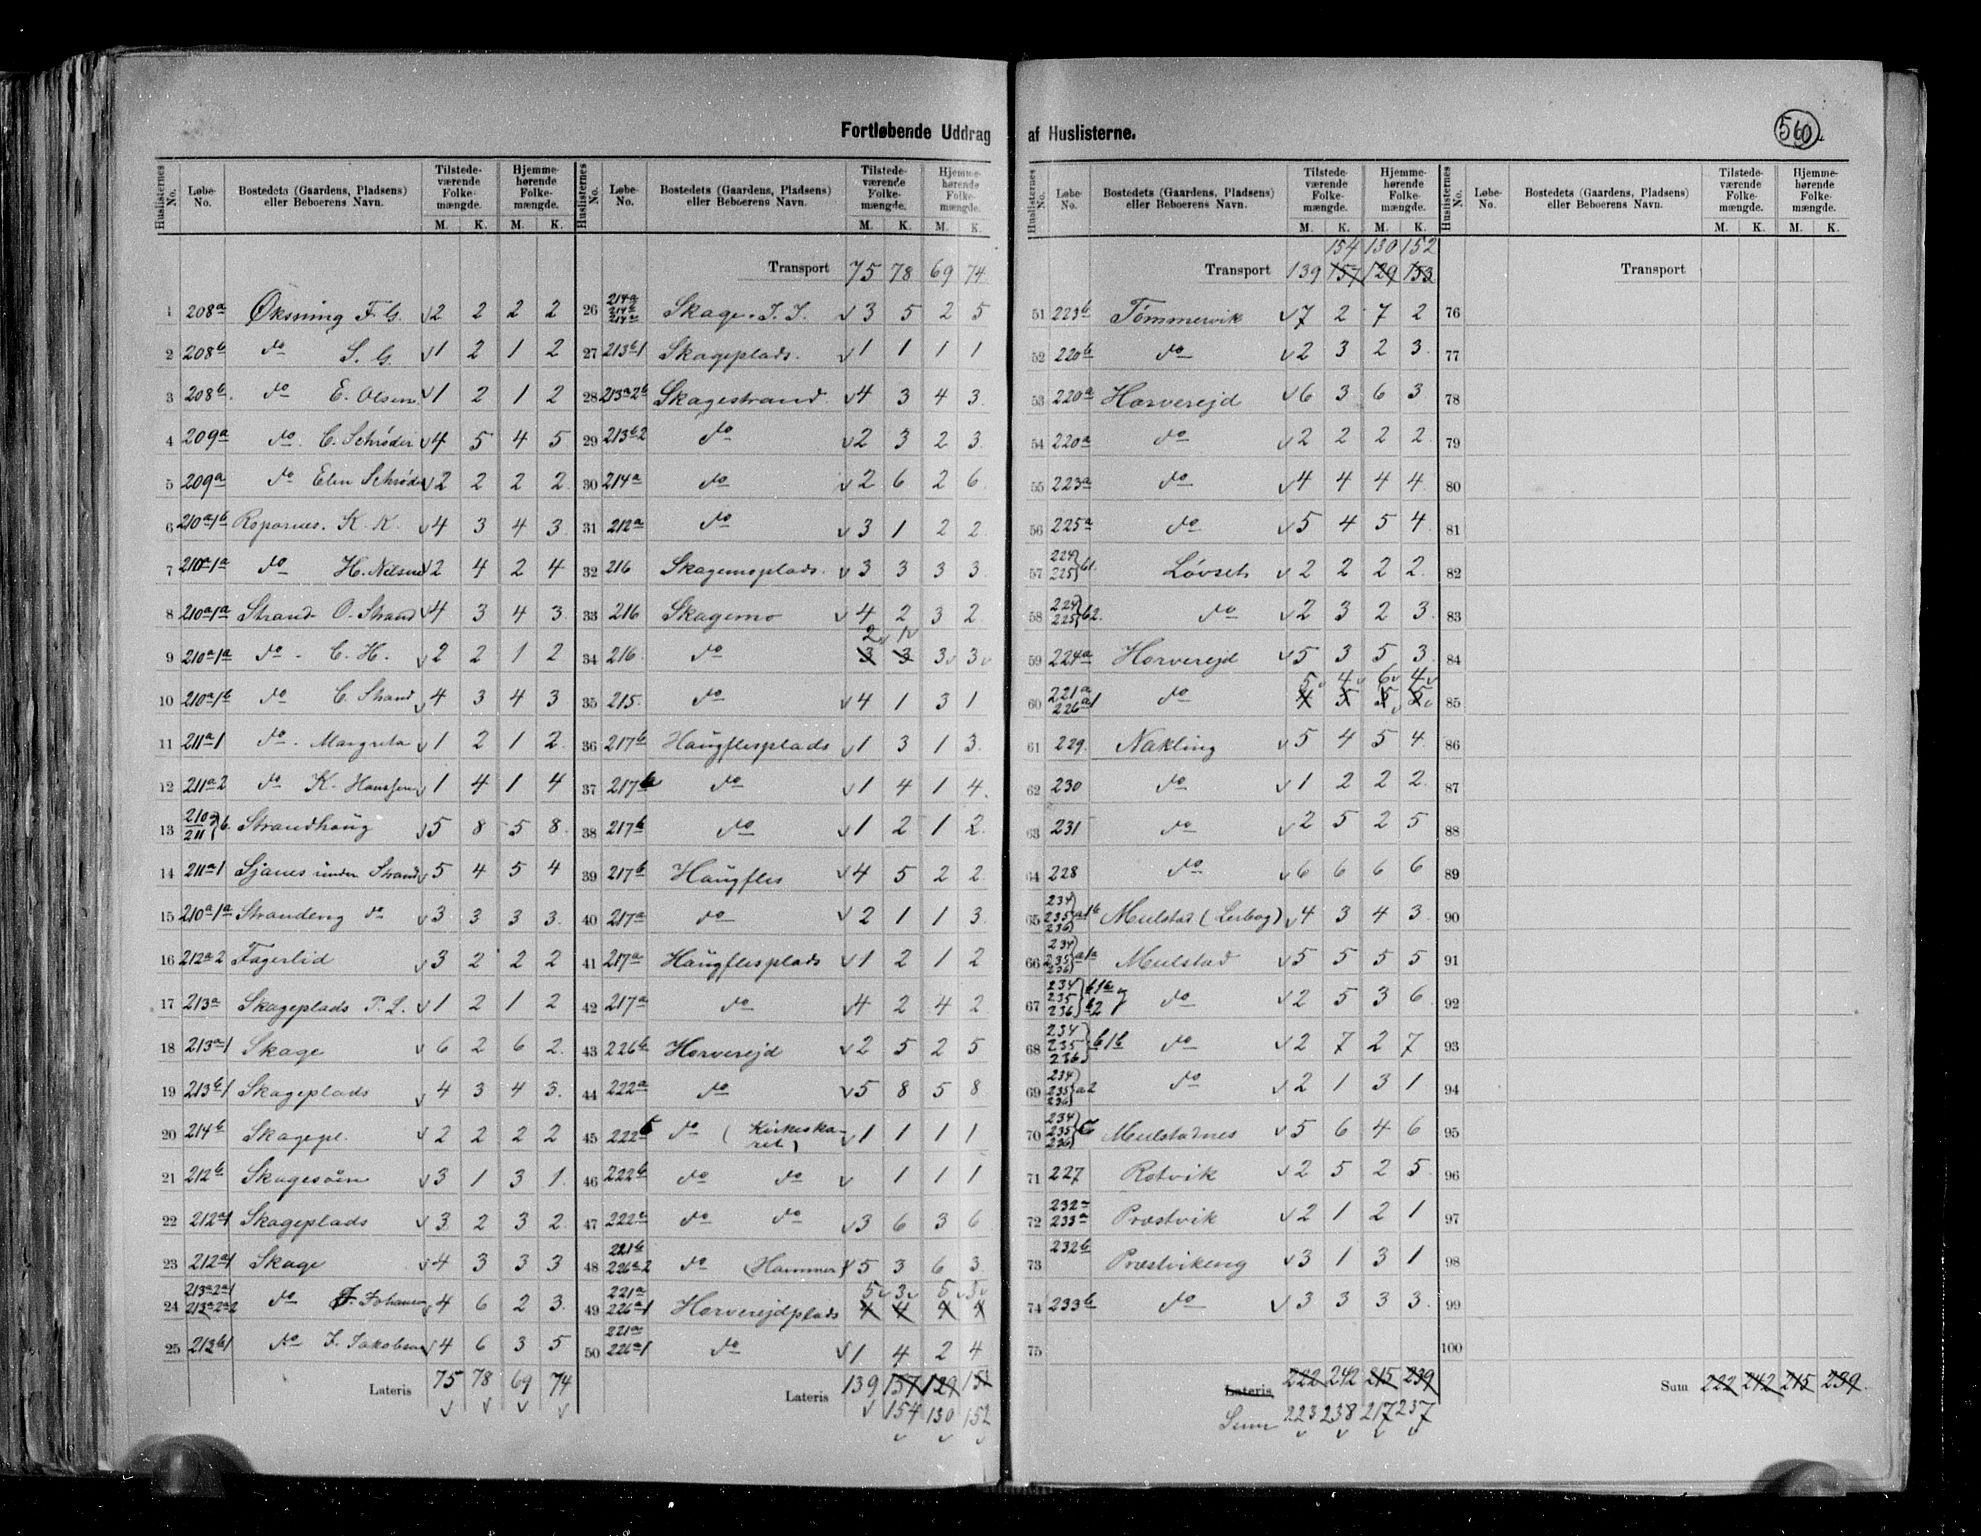 Fortløbende Uddrag af Huslisterne.
560
Huslisternes No. Løbe-No. Bostedets (Gaardens, Pladsens) eller Beboerens Navn. Tilstede-værende Folke-mængde. M. K. Hjemme-hørende Folke-mængde. M. K.
1 208a Øksning F. G. 2 2 2 2
2 208b do S. G. 1 2 1 2
3 208b. do E. Olsen 1 2 1 2
4 209a do. C. Schrøder 4 5 4 5
5 209a do Elen Schrøder 2 2 2 2
6 210a1b Ropørnes. K. K. 4 3 4 3
7 210a1a do H. Nilsen 2 4 2 4
8 210a1a Strand O. Strand 4 3 4 3
9 210a1a do - C. H. 2 2 1 2
10 210a1b do C. Strand 4 3 4 3
11 211a1 do. Margreta 1 2 1 2
12 211a2 do K. Hanssen 1 4 1 4
13 210 211 } b. Strandhaug 5 8 5 8
14 211a1 Sjanes under Strand 5 4 5 4
15 210a1a Strandeng do 3 3 3 3
16 212a2 Fagerlid 3 2 2 2
17 213a Skageplads P. L. 1 2 1 2
18 213a1 Skage 6 2 6 2
19 213b1 Skageplads 4 3 4 3
20 214b Skagepl. 2 2 2 2
21 212b Skagesøen 3 1 3 1
22 212a1 Skageplads 3 2 3 2
23 212a1 Skage 4 3 3 3
24 213a2a1 213a2a2 do J. Johansen 4 6 2 3
25 213b1 do J. Jakobsen 4 6 3 5
Lateris 75 78 69 74
Huslisternes No. Løbe-No. Bostedets (Gaardens, Pladsens) eller Beboerens Navn. Tilstede-værende Folke-mængde. M. K. Hjemme-hørende Folke-mængde. M. K.
Transport 75 78 69 74
26 214a 214b 214a Skage. J. J. 3 5 2 5
27 213b1 Skageplads. 1 1 1 1
28 213a2b Skagestrand 4 3 4 3
29 213b2 do 2 3 2 3
30 214a do 2 6 2 6
31 212a do 3 1 2 2
32 216 Skagemoplads. 3 3 3 3
33 216 Skagemo 4 2 3 2
2 1
34 216 do 3 3 3 3
35 215. do 4 1 3 1
36 217b Haugflesplads 1 3 1 3
37 217b do 1 4 1 4
38 217b do 1 2 1 2
39 217b Haugfles 4 5 2 2
40 217a do 2 1 1 3
41 217a Haugflesplads 1 2 1 2
42 217a do 4 2 4 2
43 226b Horverejd 2 5 2 5
44 222a do 5 8 5 8
45 222b do (Kirkeska-ret) 1 1 1 1
46 222b do do 1 1 1
47 222a do do 3 6 3 6
48 221b 226a2 do (Hammer) 5 3 6 3
5 3 5 3
49 221a 226a1 Horverejdplads 4 4 4 4
50 221a 226a1 do 1 4 2 4
Lateris 139 157 129 153
154 130 152
Huslisternes No. Løbe-No. Bostedets (Gaardens, Pladsens) eller Beboerens Navn. Tilstede-værende Folke-mængde. M. K. Hjemme-hørende Folke-mængde. M. K.
154 130 152
Transport 139 157 129 153
51 223b Tømmervik 7 2 7 2
52 220b do 2 3 2 3
53 220a Horverejd 6 3 6 3
54 220a do 2 2 2 2
55 223a do 4 4 4 4
56 225a do 5 4 5 4
57 224 225 } b1. Løvset 2 2 2 2
58 224 225 } b2. do 2 3 2 3
59 224a Horverejd 5 3 5 3
5 4 6 4
60 221a 226a1 do 4 5 5 5
61 229. Nakling 5 4 5 4
62 230 do 1 2 2 2
63 231 do 2 5 2 5
64 228 do 6 6 6 6
65 234 235 236 } a1b Mulstad (Lerbog) 4 3 4 3
66 234 235 236 } a1a Mulstad 5 5 5 5
67 234 235 236 } b1b b2 do 2 5 3 6
68 234 235 236 } b1b do 2 7 2 7
69 234 235 236 } a2 do 2 1 3 1
70 234 235 236 } C Mulstadnes 5 6 4 6
71 227 Rotvik 2 5 2 5
72 232a 233a Præstvik 2 1 2 1
73 232b Præstvikeng 3 1 3 1
74 233b do 3 3 3 3
75
Lateris 222 242 215 239
Sum 223 238 217 237
Huslisternes No. Løbe-No. Bostedets (Gaardens, Pladsens) eller Beboerens Navn. Tilstede-værende Folke-mængde. M. K. Hjemme-hørende Folke-mængde. M. K.
Transport
76
77
78
79
80
81
82
83
84
85
86
87
88
89
90
91
92
93
94
95
96
97
98
99
100
Sum 222 242 215 239.